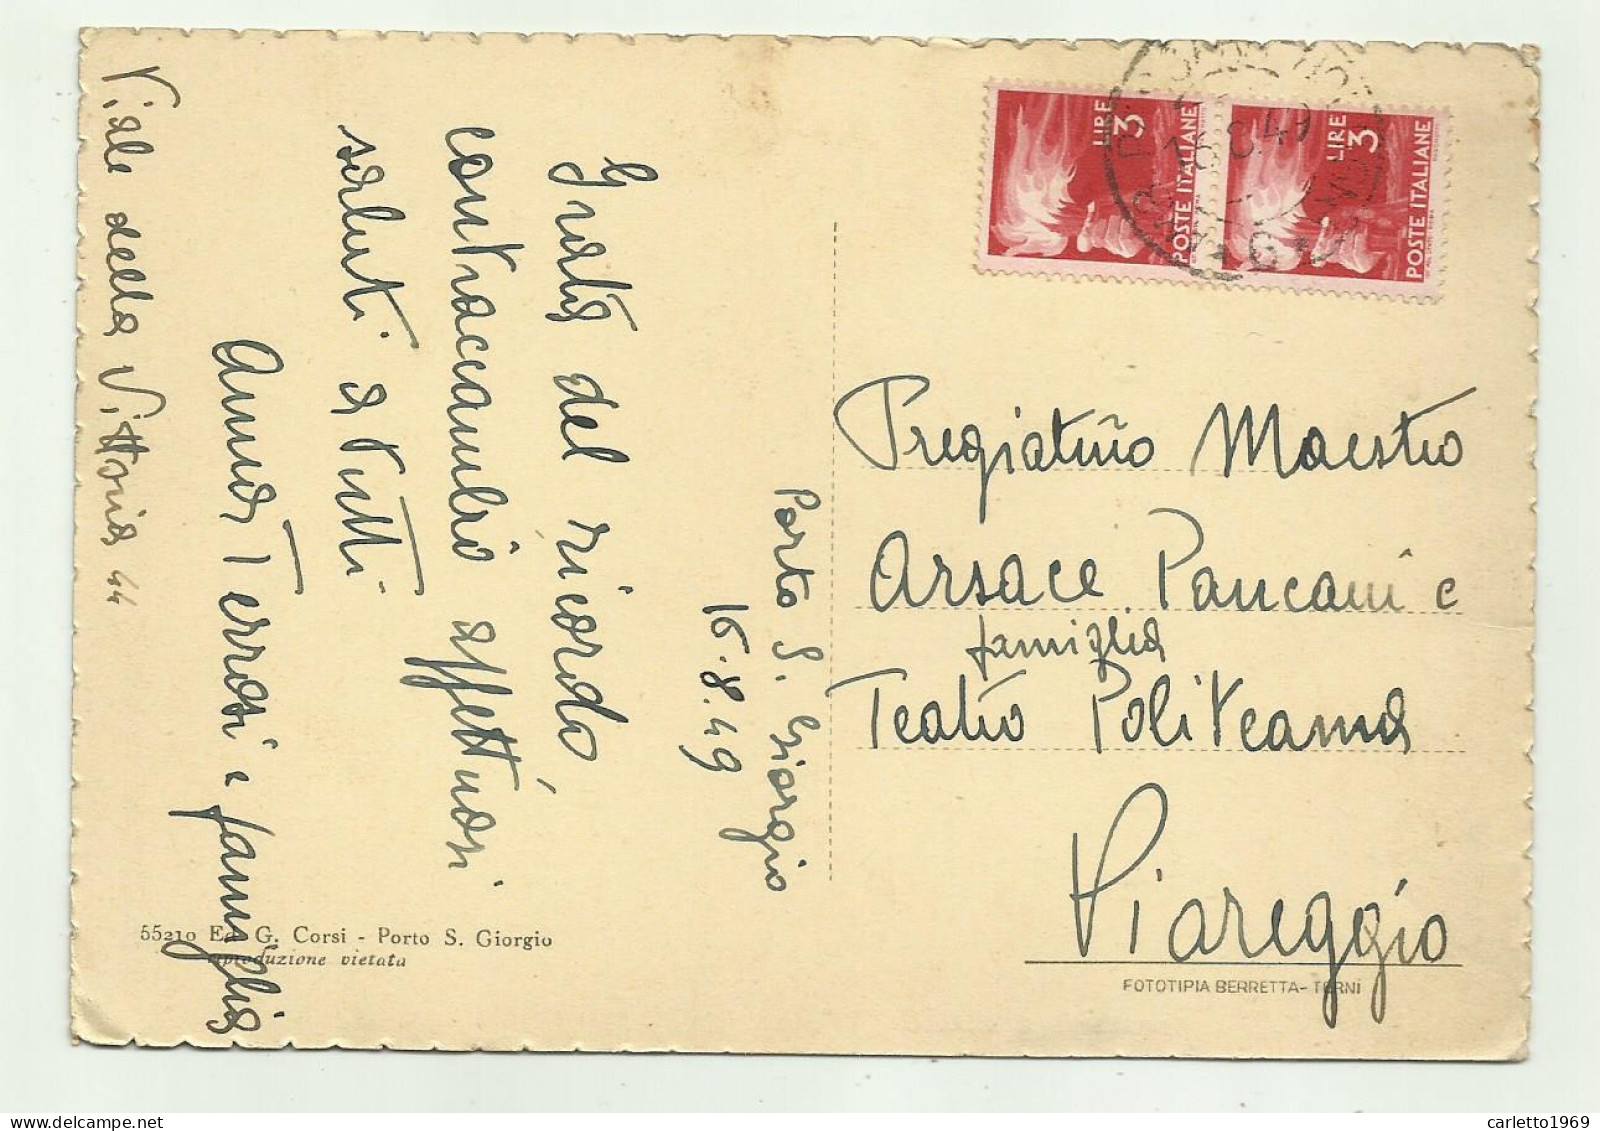 Porto S. Giorgio
16.8.49
Grata del ricordo
contraccambio affettuosi
saluti a tutti
Anna Terrosi e famiglia
Viale della Vittoria 44
55210 Ed. G. Corsi - Porto S. Giorgio
riproduzione vietata
LIRE
3
POSTE ITALIANE
LIRE
3
POSTE ITALIANE
Pregiatmo Maestro
Arsace Pancani e
famiglia
Teatro Politeama
Viareggio
FOTOTIPIA BERRETTA - TERNI
carletto1969